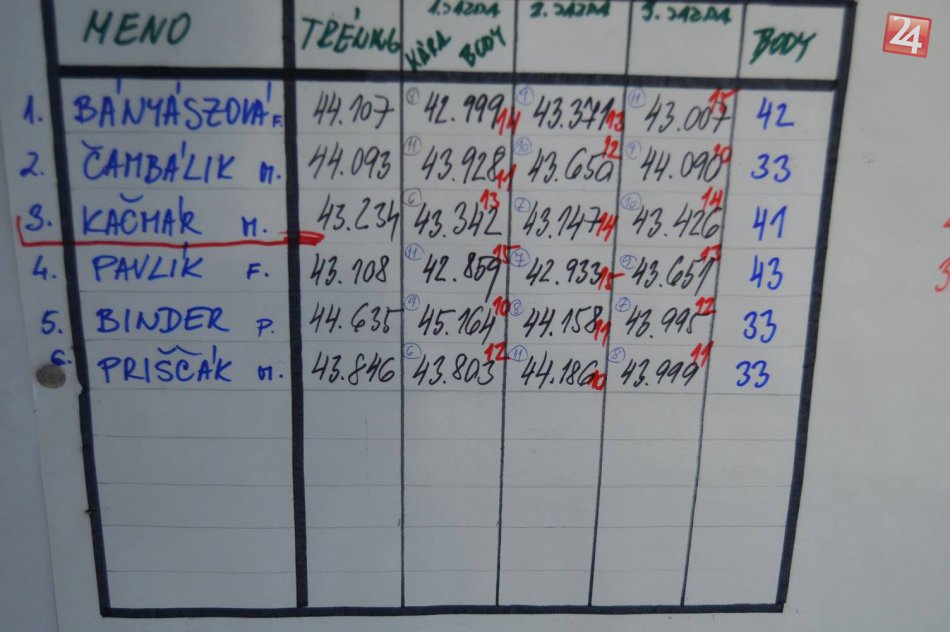 24
1. JAZDA 2. JAZDA 3. JAZDA
MENO TRÉNING KÁRA BODY BODY
1. BÁNYÁSZOVÁ F. 44.107 8 42.999 14 9 43.371 13 11 43.007 15 42
2. ČAMBÁLIK M. 44.093 11 43.928 11 10 43.650 12 9 44.090 10 33
3. KAČMÁR M. 43.234 6 43.342 13 7 43.147 14 10 43.426 14 41
4. PAVLÍK F. 43.108 11 42.859 15 7 42.933 15 9 43.651 13 43
5. BINDER P. 44.635 9 45.164 10 8 44.158 11 7 43.995 12 33
6. PRIŠČÁK M. 43.846 6 43.803 12 11 44.186 10 8 43.999 11 33